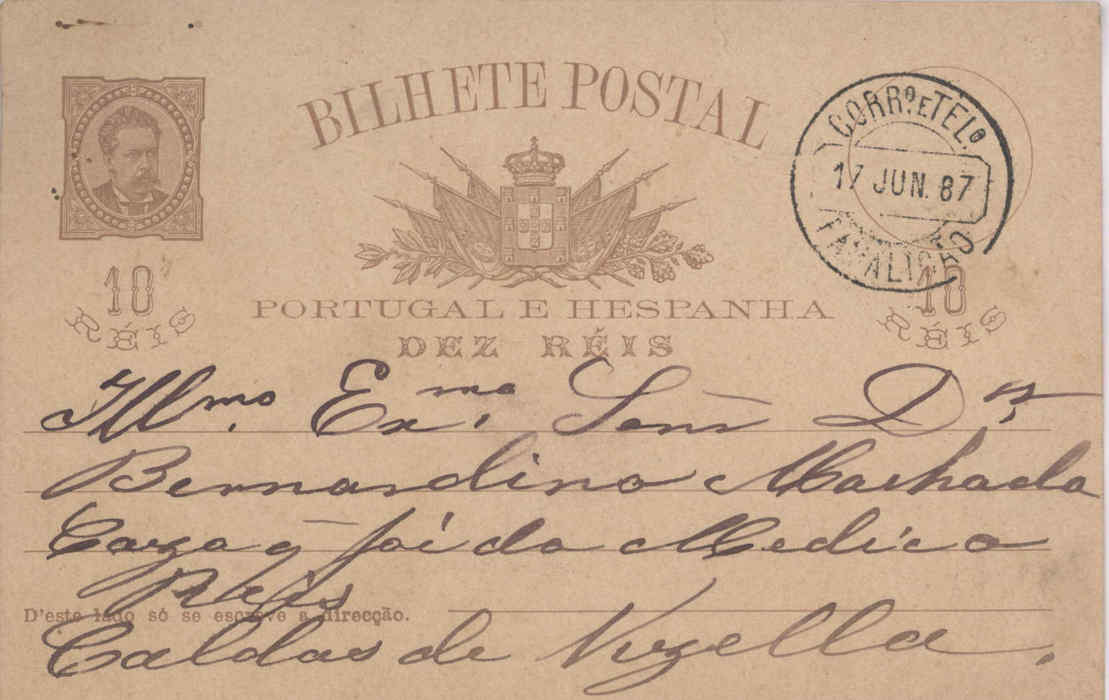 BILHETE POSTAL
CORRO. E TELO.
17 JUN. 87
FAMALICÃO
10
RÉIS
10
RÉIS
PORTUGAL E HESPANHA
DEZ RÉIS
Illmo. Exmo. Senr Dr.
Bernardino Machado
Caza q foi do Medico
D'este lado só se escreve a direcção.
Caldas de Vizella.